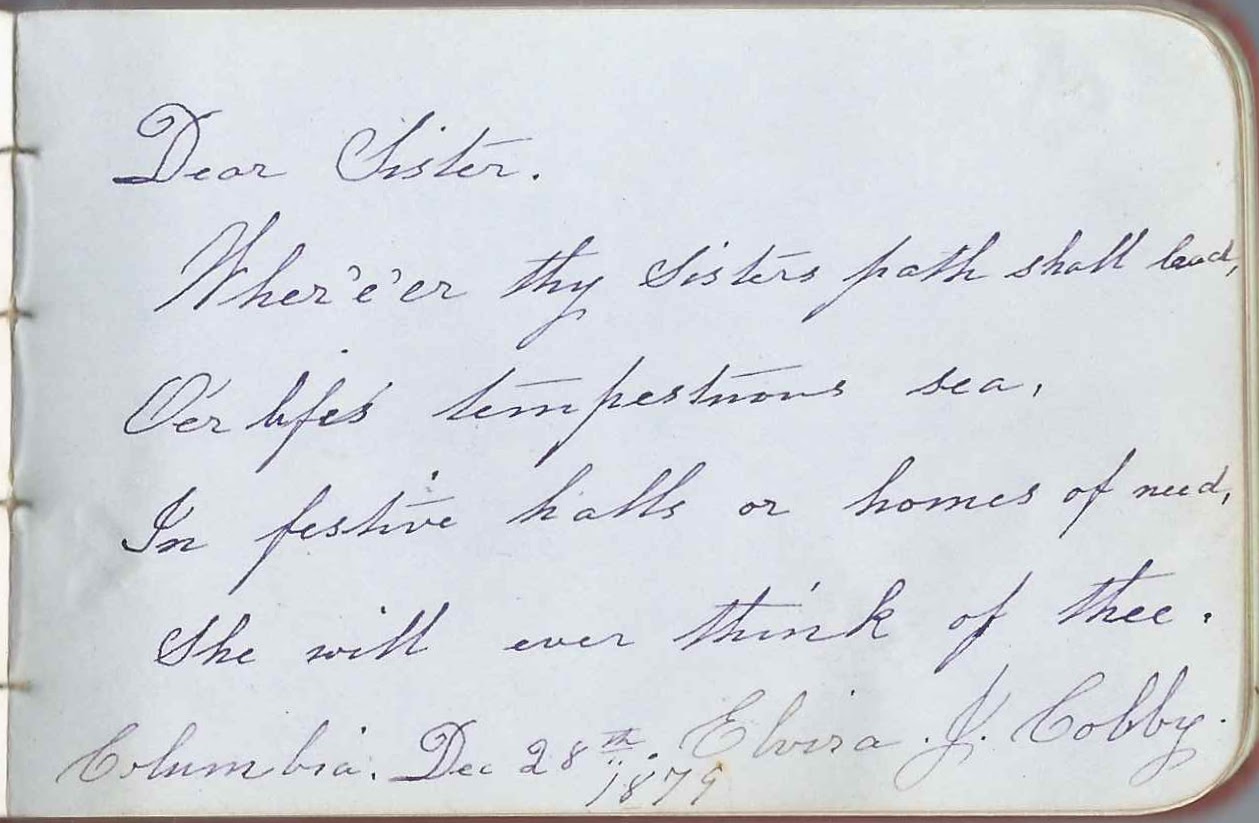 Dear Sister.
Wher'e'er thy Sisters path shall lead,
O'er lifes' tempestuous sea,
In festive halls or homes of need,
She will ever think of thee.
Columbia. Dec 28th. Elvira. J. Cobby.
1879